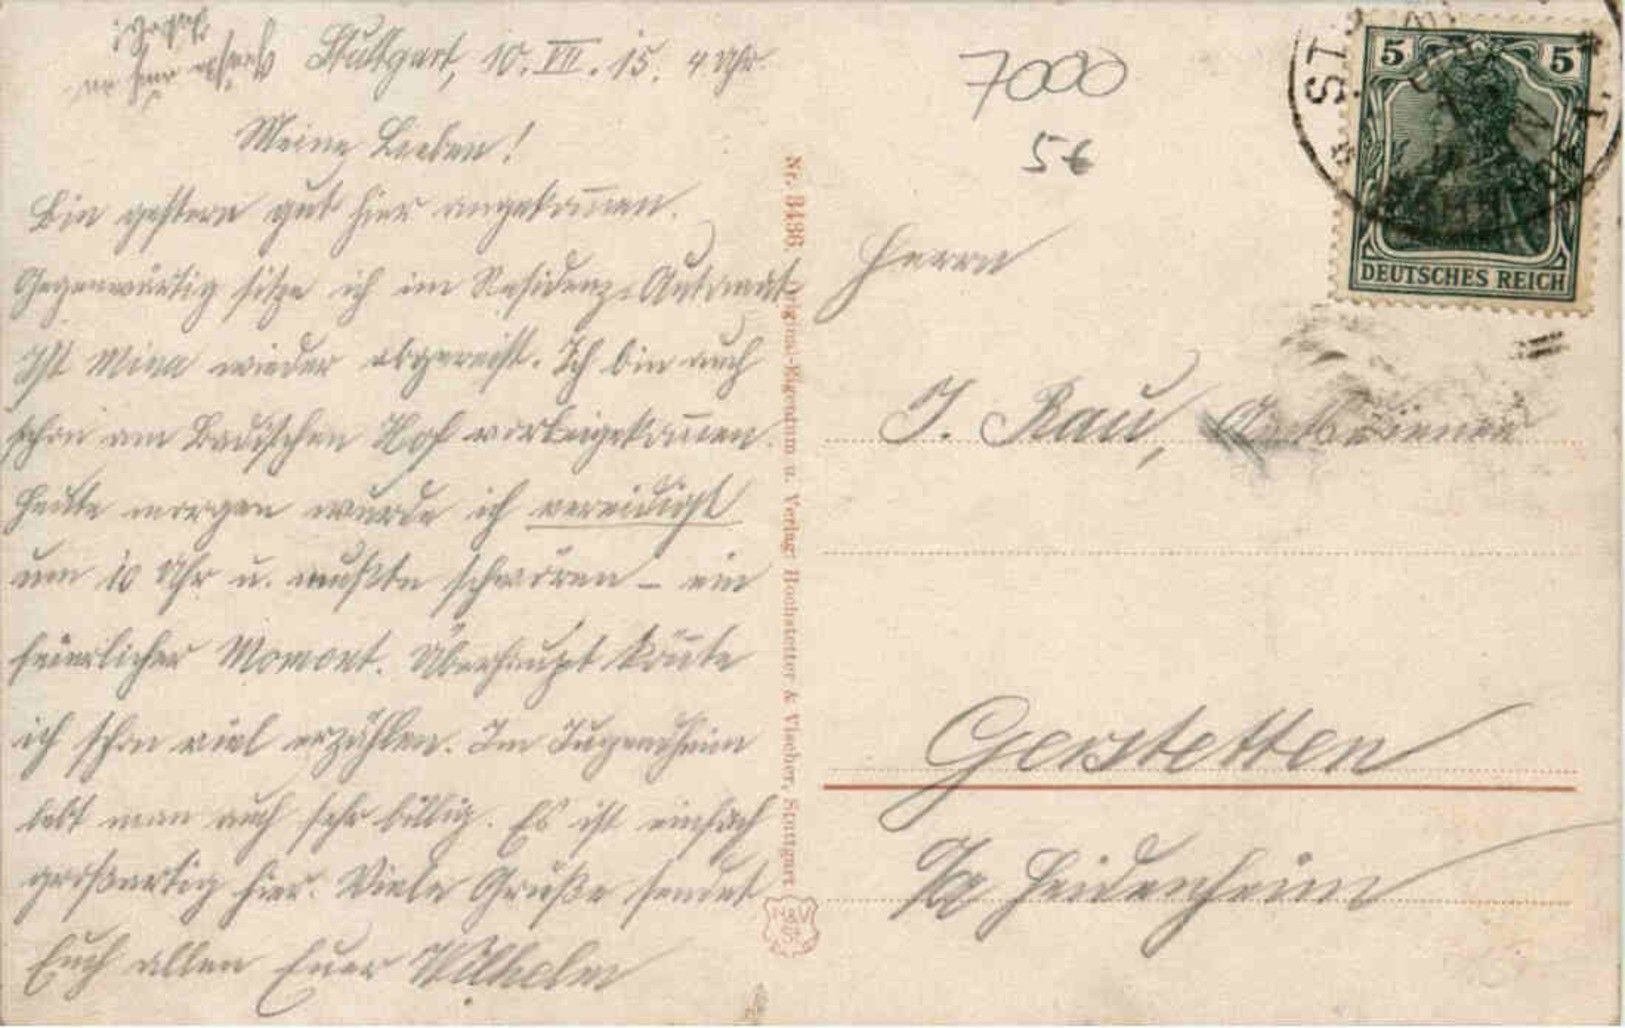 Stuttgart, 10. VII. 15. 4 Uhr.
Meine Lieben!
Bin gestern gut hier angekom̅en.
Gegenwärtig sitze ich im Residenz-Automat
Ist Mina wieder abgereist. Ich bin auch
schon am Badischen Hof vorbeigekom̅en.
Heute morgen wurde ich vereidigt
um 10 Uhr u. mußte schwören – ein
feierlicher Moment. Überhaupt kön̅te
ich schon viel erzählen. Im Jugendheim
lebt man auch sehr billig. Es ist einfach
großartig hier. Viele Grüße sendet
Euch allen Euer Wilhelm
Nr. 3436. Original-Eigentum u. Verlag Hochstetter & Vischer, Stuttgart
H&V
S
7000
5€
ST
5 5
DEUTSCHES REICH
Herrn
J. Rau, Amtsdiener
Gerstetten
O/A Heidenheim